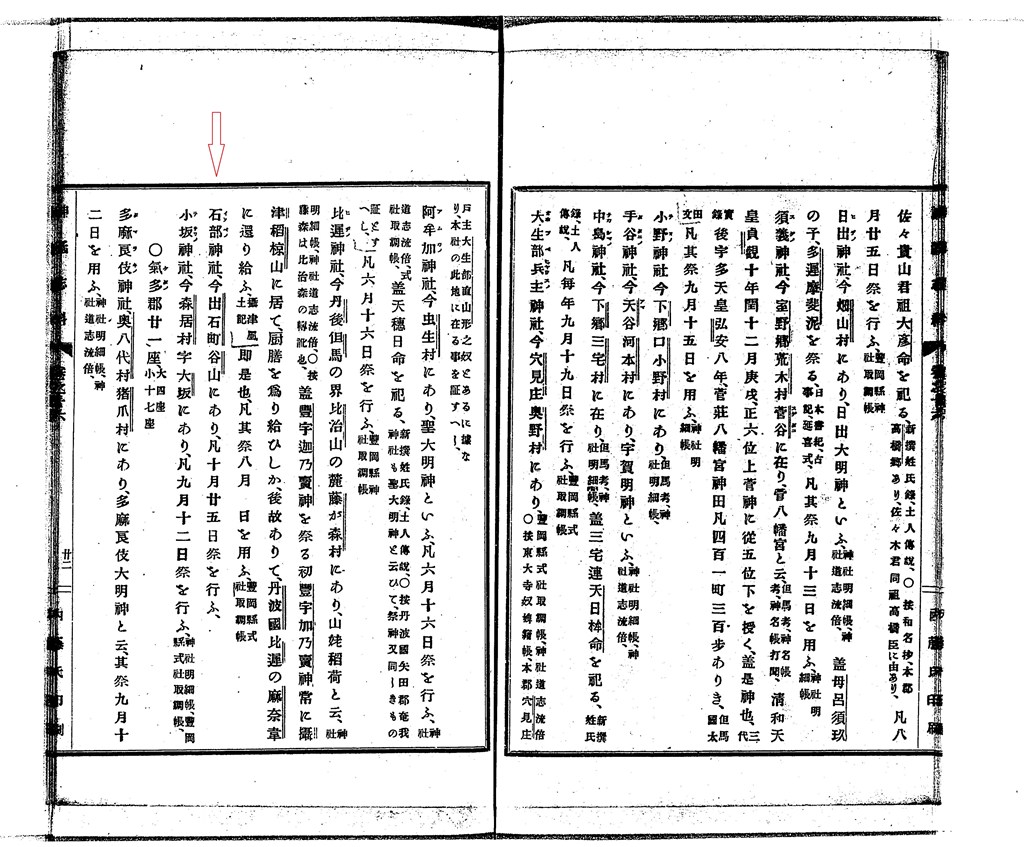 佐々貴山君祖大彦命を祀る、新撰姓氏錄、土人傳說、〇按和名抄、本郡高橋鄕あり佐々木君同祖高橋臣に由あり、凡八
月廿五日祭を行ふ、豐岡縣神社取調帳
日出神社、今畑山村にあり、日出大明神といふ、神社明細帳、神社道志流倍、蓋母呂須玖
の子、多遲摩斐泥を祭る、日本書紀、古事記、延喜式、凡其祭九月十三日を用ふ、神社明細帳
須義神社、今室野鄕荒木村菅谷に在り、菅八幡宮と云、但馬考、神名帳考、神名帳打聞、淸和天
皇貞觀十年閏十二月庚戌、正六位上菅神に從五位下を授く、蓋是神也、三代
實錄後宇多天皇弘安八年、菅莊八幡宮神田凡四百一町三百步ありき、但馬國太
田文凡其祭九月十五日を用ふ、神社明細帳
小野神社、今下鄕口小野村にあり、但馬考、神社明細帳、
手谷神社、今天谷河本村にあり、宇賀明神といふ、神社明細帳、神社道志流倍、
中島神社、今下鄕三宅村に在り、但馬考、神社明細帳、蓋三宅連天日桙命を祀る、新撰姓氏
錄、土人傳說、凡每年九月十九日祭を行ふ、豐岡縣式社取調帳
大生部兵主神社、今穴見庄奥野村にあり、豐岡縣式社取調帳、神社道志流倍〇按東大寺奴婢籍帳、本郡穴見庄
戸主大生部直山形之奴とあるに據なり、本社の此地に在る事を証すへし、
阿牟加神社、今虫生村にあり、聖大明神といふ、凡六月十六日祭を行ふ、神社
道志流倍、式社取調帳、蓋天穗日命を祀る、新撰姓氏錄、土人傳說、〇按丹波國矢田郡奄我神社も聖大明神と云ひて、祭神又同しきもの
証とすへし、凡六月十六日祭を行ふ、豐岡縣神社取調帳
比遲神社、今丹後但馬の界比治山の麓藤が森村にあり、山姥稻荷と云、神社
明細帳、神社道志流倍、〇按藤森は比治森の轉訛也、蓋豐宇迦乃賣神を祭る初豐宇加乃賣神常に攝
津稻椋山に居て、厨膳を爲り給ひしか、後故ありて、丹波國比遲の麻奈韋
に還り給ふ、攝津風土記、即是也凡其祭八月 日を用ふ、豐岡縣式社取調帳
石部神社、今出石町谷山にあり、凡十月廿五日祭を行ふ、
小坂神社、今森居村字大坂にあり、凡九月十二日祭を行ふ、神社明細帳、豐岡縣式社取調帳、
〇氣多郡廿一座大四座小十七座
多麻良伎神社、奧八代村猪爪村にあり、多麻良伎大明神と云、其祭九月十
二日を用ふ、神社明細帳、神社道志流倍、
廿二